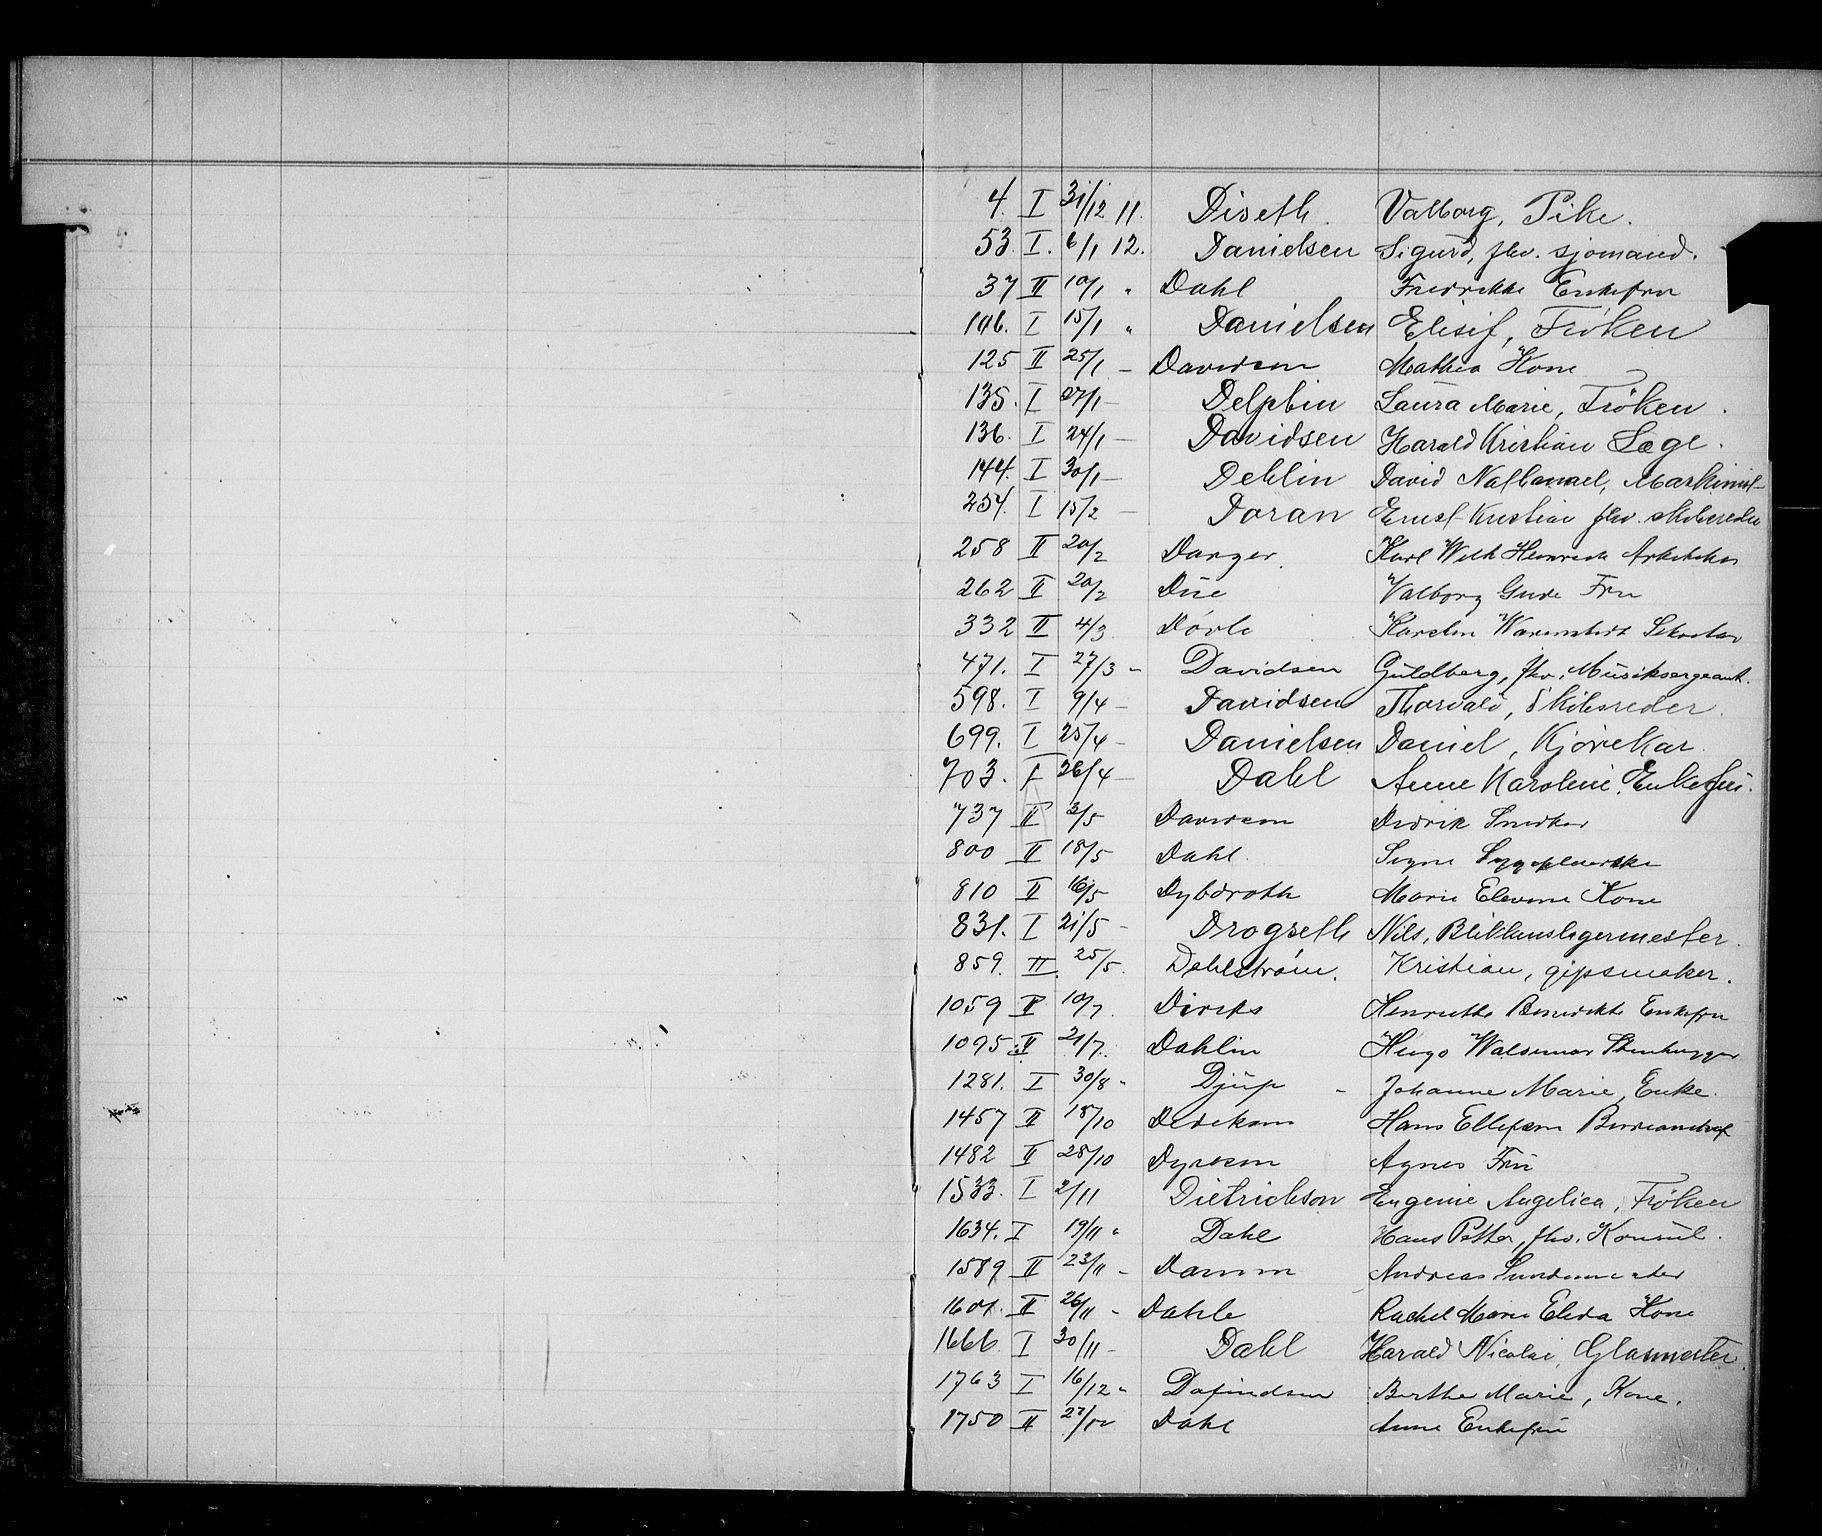 4. I 31/12 11. Diseth. Valborg, Pike.
53. I. 6/1 12. Danielsen Sigurd, fhv. sjømand.
37 II 10/1 " Dahl Fredrikke Enkefru
146. I 15/1 " Danielsen Elisif, Frøken
125 II 25/1 - Davidsen Mathea Kone
135. I 27/1 - Delphin Laura Marie, Frøken.
136. I 24/1 - Davidsen Harald Kristian Læge.
144. I 30/1 - Dehlin David Nathanael,
254. I 15/2 - Doran Ernst Kristian fhv. skibsreder
258 II 20/2 Danger. Karl Wilh Heinrich Arkitekt
262 II 20/2 Due Valborg Gude Fru
332 II 4/3 Karsten Warenstedt Sekretær
471. I 27/3 - Davidsen Guldberg, fhv. Musiksergeant.
598. I 9/4 - Davidsen Thorvald, Skibsreder.
699. I 25/4 - Danielsen Daniel, Kjørekar.
703. I 26/4 - Dahl Anne Karoline, Enkefru.
737 II 3/5 Davidsen Didrik Snedker
800 II 18/5 Dahl. Signe Sygepleierske
810 II 16/5 Dybdroth Marie Elevine Kone
831. I 21/5 - Drogseth Nils, Blikkenslagermester.
859. II. 25/5. Dahlstrøm. Kristian, gipsmaker.
1059 II 10/7. Diriks Henriette Benedikte Enkefru
1095. II 21/7. Dahlin Hugo Waldemar Stenhugger
1281. I 30/8 " Djup - Johanne Marie, Enke.
1457 II 18/10 Didriksen Hans Ellefsen
1482 II 28/10 Dyresen Agnes Fru
1533. I 2/11 Dietrichson Eugenie Angelica, Frøken
1634. I 19/11 " Dahl Hans Petter, fhv. Konsul.
1589 II 23/11 - Damm Andreas
1601. II 26/11 - Dahle Rachel Marie Elida Kone
1666 I 30/11 - Dahl Harald Nicolai, Glasmester.
1763 I 16/12 " Dafindsen Berthe Marie, Kone.
1750 II 27/12 Dahl Anne Enkefru